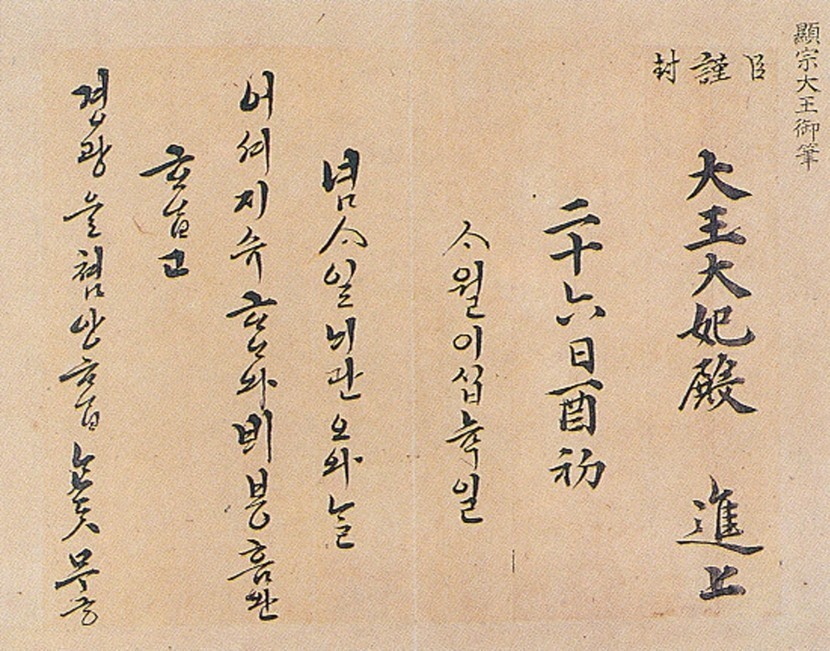 顯宗大王御筆
臣謹封
大王大妃殿 進上
二十六日酉初
ᄉᆞ월이십뉵일
념ᄉᆞ일ᄂᆡ관오와ᄂᆞᆯ
어셔지슈ᄒᆞ와ᄇᆡ봉흠완
ᄒᆞᄋᆞᆸ고
경광을쳠안ᄒᆞᄋᆞᆸ ᄃᆞᆺ무궁